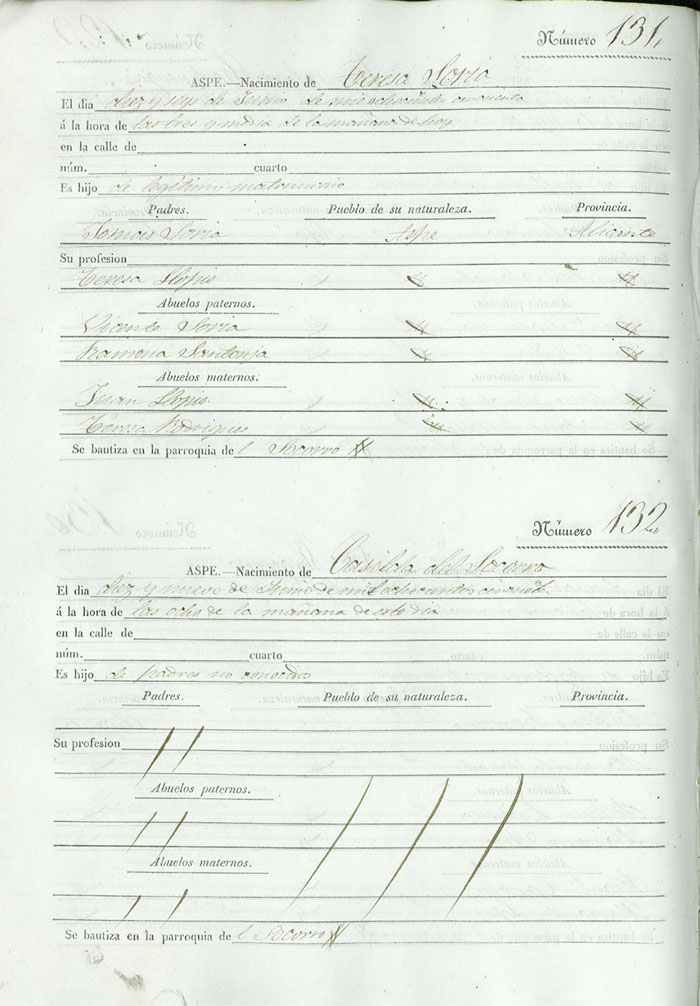 Número 131,
ASPE.—Nacimiento de Teresa Soria
El dia diez y seys de Junio de mil ochocientos cincuenta
á la hora de las tres y media de la mañana de hoy
en la calle de
núm. cuarto
Es hijo de legitimo matrimonio
Padres. Pueblo de su naturaleza. Provincia.
Tomas Soria Aspe Alicante
Su profesion
Teresa Llopis
Abuelos paternos.
Vicente Soria
Ramona Santonja
Abuelos maternos.
Juan Llopis
Teresa Rodrigues
Se bautiza en la parroquia del Socorro
Número 132
ASPE.—Nacimiento de Casilda del Socorro
El dia diez y nueve de Junio de mil ochocientos cincuenta
á la hora de las ocho de la mañana de este dia
en la calle de
núm. cuarto
Es hijo de padres no conocidos
Padres. Pueblo de su naturaleza. Provincia.
Su profesion
Abuelos paternos.
Abuelos maternos.
Se bautiza en la parroquia del Socorro